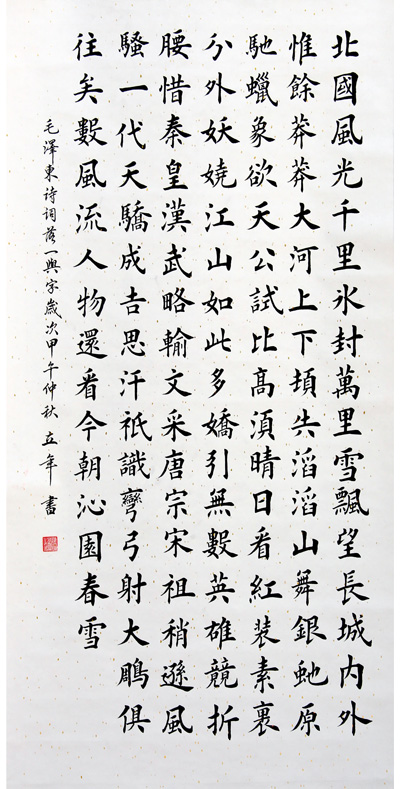 北國風光千里氷封萬里雪飄望長城内外
惟餘莽莽大河上下頓失滔滔山舞銀虵原
馳蠟象欲天公試比髙湏晴日看紅装素裹
分外妖嬈江山如此多嬌引無數英雄競折
腰惜秦皇漢武略輸文采唐宗宋祖稍遜風
騷一代天驕成吉思汗祇識彎弓射大鵰俱
往矣數風流人物還看今朝沁園春雪
毛澤東詩詞落一與字歲次甲午仲秋 立年書